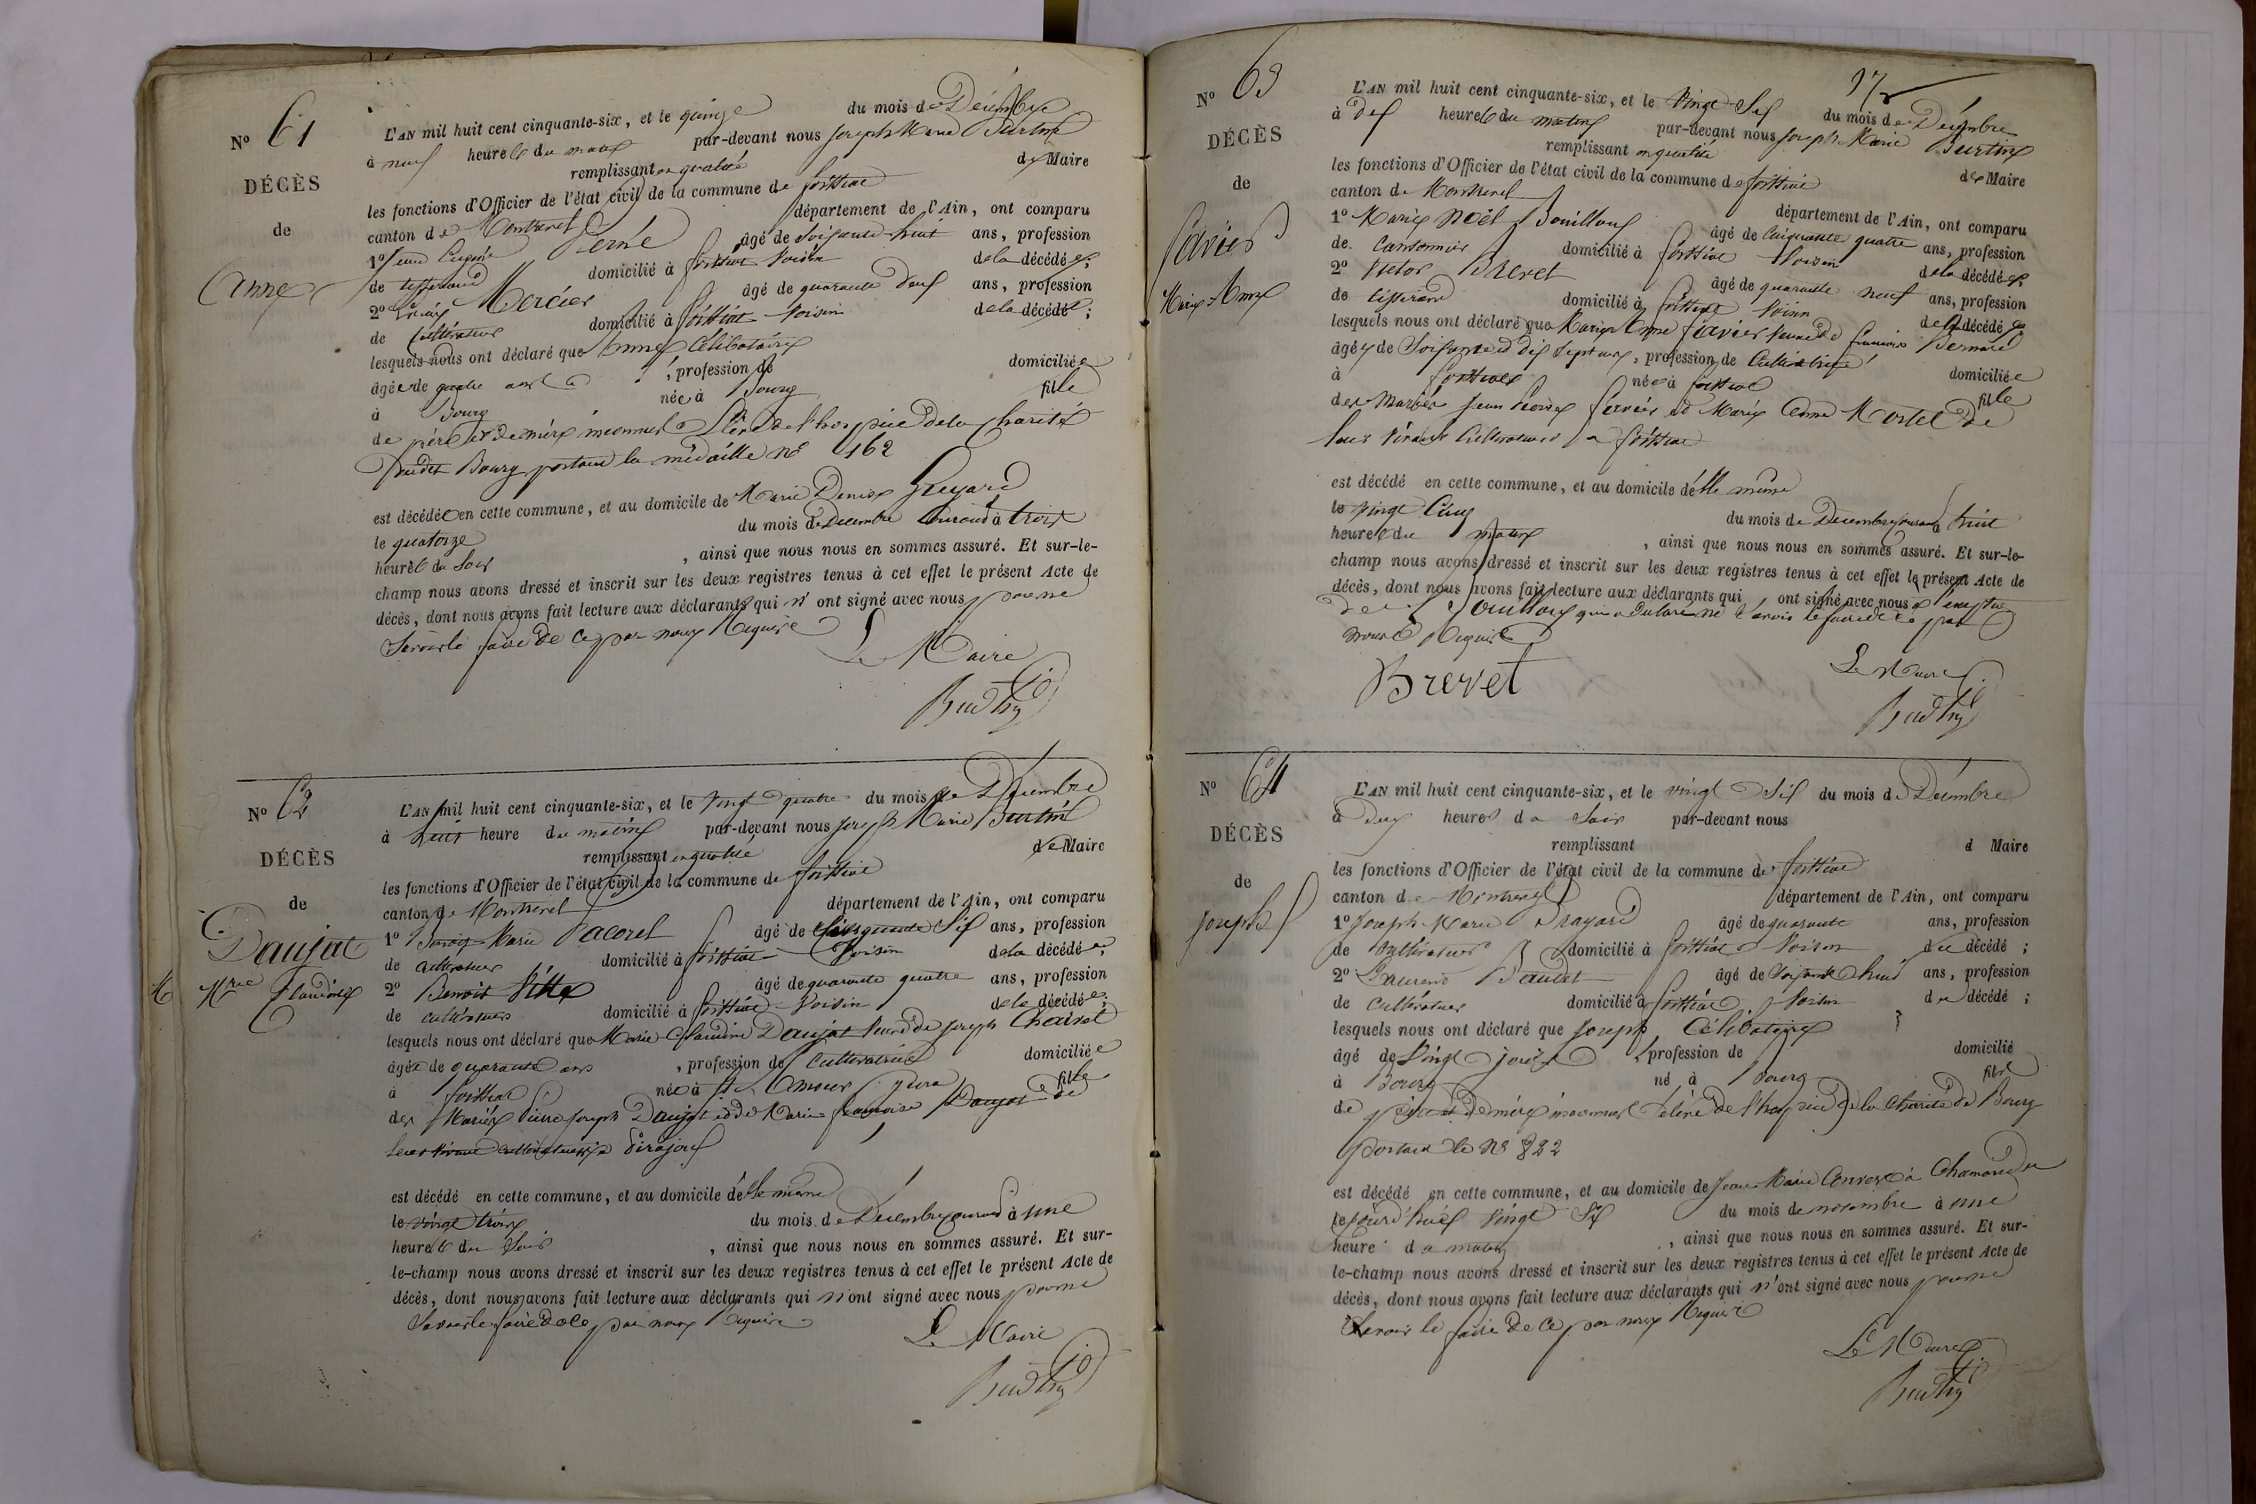 N° 61
DÉCÈS
de
Anne
L'AN mil huit cent cinquante-six, et le quinze du mois de Décembre
à neuf heures du matin par-devant nous Joseph Marie
remplissant en qualité de Maire
les fonctions d'Officier de l'état civil de la commune de Foissiat
canton de Montrevel département de l'Ain, ont comparu
1° Jean Eugène Perne âgé de soixante-huit ans, profession
de tisserand domicilié à Foissiat voisin de la décédée;
2° Mercier âgé de quarante deux ans, profession
de cultivateur domicilié à Foissiat voisin de la décédée;
lesquels nous ont déclaré que Anne célibataire
âgée de quatre ans, profession de domiciliée
à Bourg née à Bourg fille
de père et de mère inconnus Elève de l'hospice de la Charité
dudit Bourg portant la médaille n° 162
est décédée en cette commune, et au domicile de Marie Denise
le quatorze du mois de Décembre courant à trois
heures du soir, ainsi que nous nous en sommes assuré. Et sur-le-
champ nous avons dressé et inscrit sur les deux registres tenus à cet effet le présent Acte de
décès, dont nous avons fait lecture aux déclarants qui n'ont signé avec nous pour ne
savoir le faire de ce par nous Requis
Le Maire
N° 62
DÉCÈS
de
Daujat
Mrie Claudine
L'AN mil huit cent cinquante-six, et le vingt quatre du mois de Décembre
à huit heure du matin par-devant nous Joseph Marie
remplissant en qualité de Maire
les fonctions d'Officier de l'état civil de la commune de Foissiat
canton de Montrevel département de l'Ain, ont comparu
1° Marie Pacoret âgé de cinquante six ans, profession
de cultivateur domicilié à Foissiat voisin de la décédée;
2° Benoit Vitte âgé de quarante quatre ans, profession
de cultivateur domicilié à Foissiat voisin de la décédée;
lesquels nous ont déclaré que Marie Claudine Daujat veuve de Joseph
âgée de quarante ans, profession de cultivatrice domiciliée
à Foissiat née à St Amour Jura fille
des Mariés Pierre Joseph Daujat et de Marie Françoise Daujat de
leur vivant cultivateurs à Pirajoux
est décédé en cette commune, et au domicile d'elle même
le vingt trois du mois de Décembre courant à une
heure du soir, ainsi que nous nous en sommes assuré. Et sur-
le-champ nous avons dressé et inscrit sur les deux registres tenus à cet effet le présent Acte de
décès, dont nous avons fait lecture aux déclarants qui n'ont signé avec nous pour ne
savoir le faire de ce par nous Requis
Le Maire
N° 63
DÉCÈS
de
Favier
Marie Anne
L'AN mil huit cent cinquante-six, et le vingt six du mois de Décembre
à dix heures du matin par-devant nous Joseph Marie
remplissant en qualité de Maire
les fonctions d'Officier de l'état civil de la commune de Foissiat
canton de Montrevel département de l'Ain, ont comparu
1° Marie Noël Bouilloux âgé de cinquante quatre ans, profession
de cantonnier domicilié à Foissiat voisin de la décédée;
2° Victor Brevet âgé de quarante neuf ans, profession
de tisserand domicilié à Foissiat voisin de la décédée
lesquels nous ont déclaré que Marie Anne Favier veuve de François Bernard
âgée de soixante et dix sept ans, profession de cultivatrice domiciliée
à Foissiat née à Foissiat fille
des Mariés Jean Favier et Marie Anne Mortel de
leur vivant cultivateurs à Foissiat
est décédé en cette commune, et au domicile d'elle même
le vingt cinq du mois de Décembre courant à huit
heures du matin, ainsi que nous nous en sommes assuré. Et sur-le-
champ nous avons dressé et inscrit sur les deux registres tenus à cet effet le présent Acte de
décès, dont nous avons fait lecture aux déclarants qui ont signé avec nous
qui a déclaré ne savoir le faire de ce par
nous Requis
Brevet
Le Maire
N° 64
DÉCÈS
de
Joseph
L'AN mil huit cent cinquante-six, et le vingt six du mois de Décembre
à deux heures du soir par-devant nous
remplissant d Maire
les fonctions d'Officier de l'état civil de la commune de Foissiat
canton de Montrevel département de l'Ain, ont comparu
1° Joseph Marie âgé de quarante ans, profession
de cultivateur domicilié à Foissiat voisin du décédé;
2° Laurent âgé de soixante huit ans, profession
de cultivateur domicilié à Foissiat voisin du décédé;
lesquels nous ont déclaré que Joseph Célibataire
âgé de vingt jours, profession de domicilié
à Bourg né à Bourg fils
de père et de mère inconnus élève de l'hospice de la Charité de Bourg
portant le N° 822
est décédé en cette commune, et au domicile de Jean Marie
vingt six du mois de novembre à une
heure du matin, ainsi que nous nous en sommes assuré. Et sur-
le-champ nous avons dressé et inscrit sur les deux registres tenus à cet effet le présent Acte de
décès, dont nous avons fait lecture aux déclarants qui n'ont signé avec nous pour ne
savoir le faire de ce par nous Requis
Le Maire